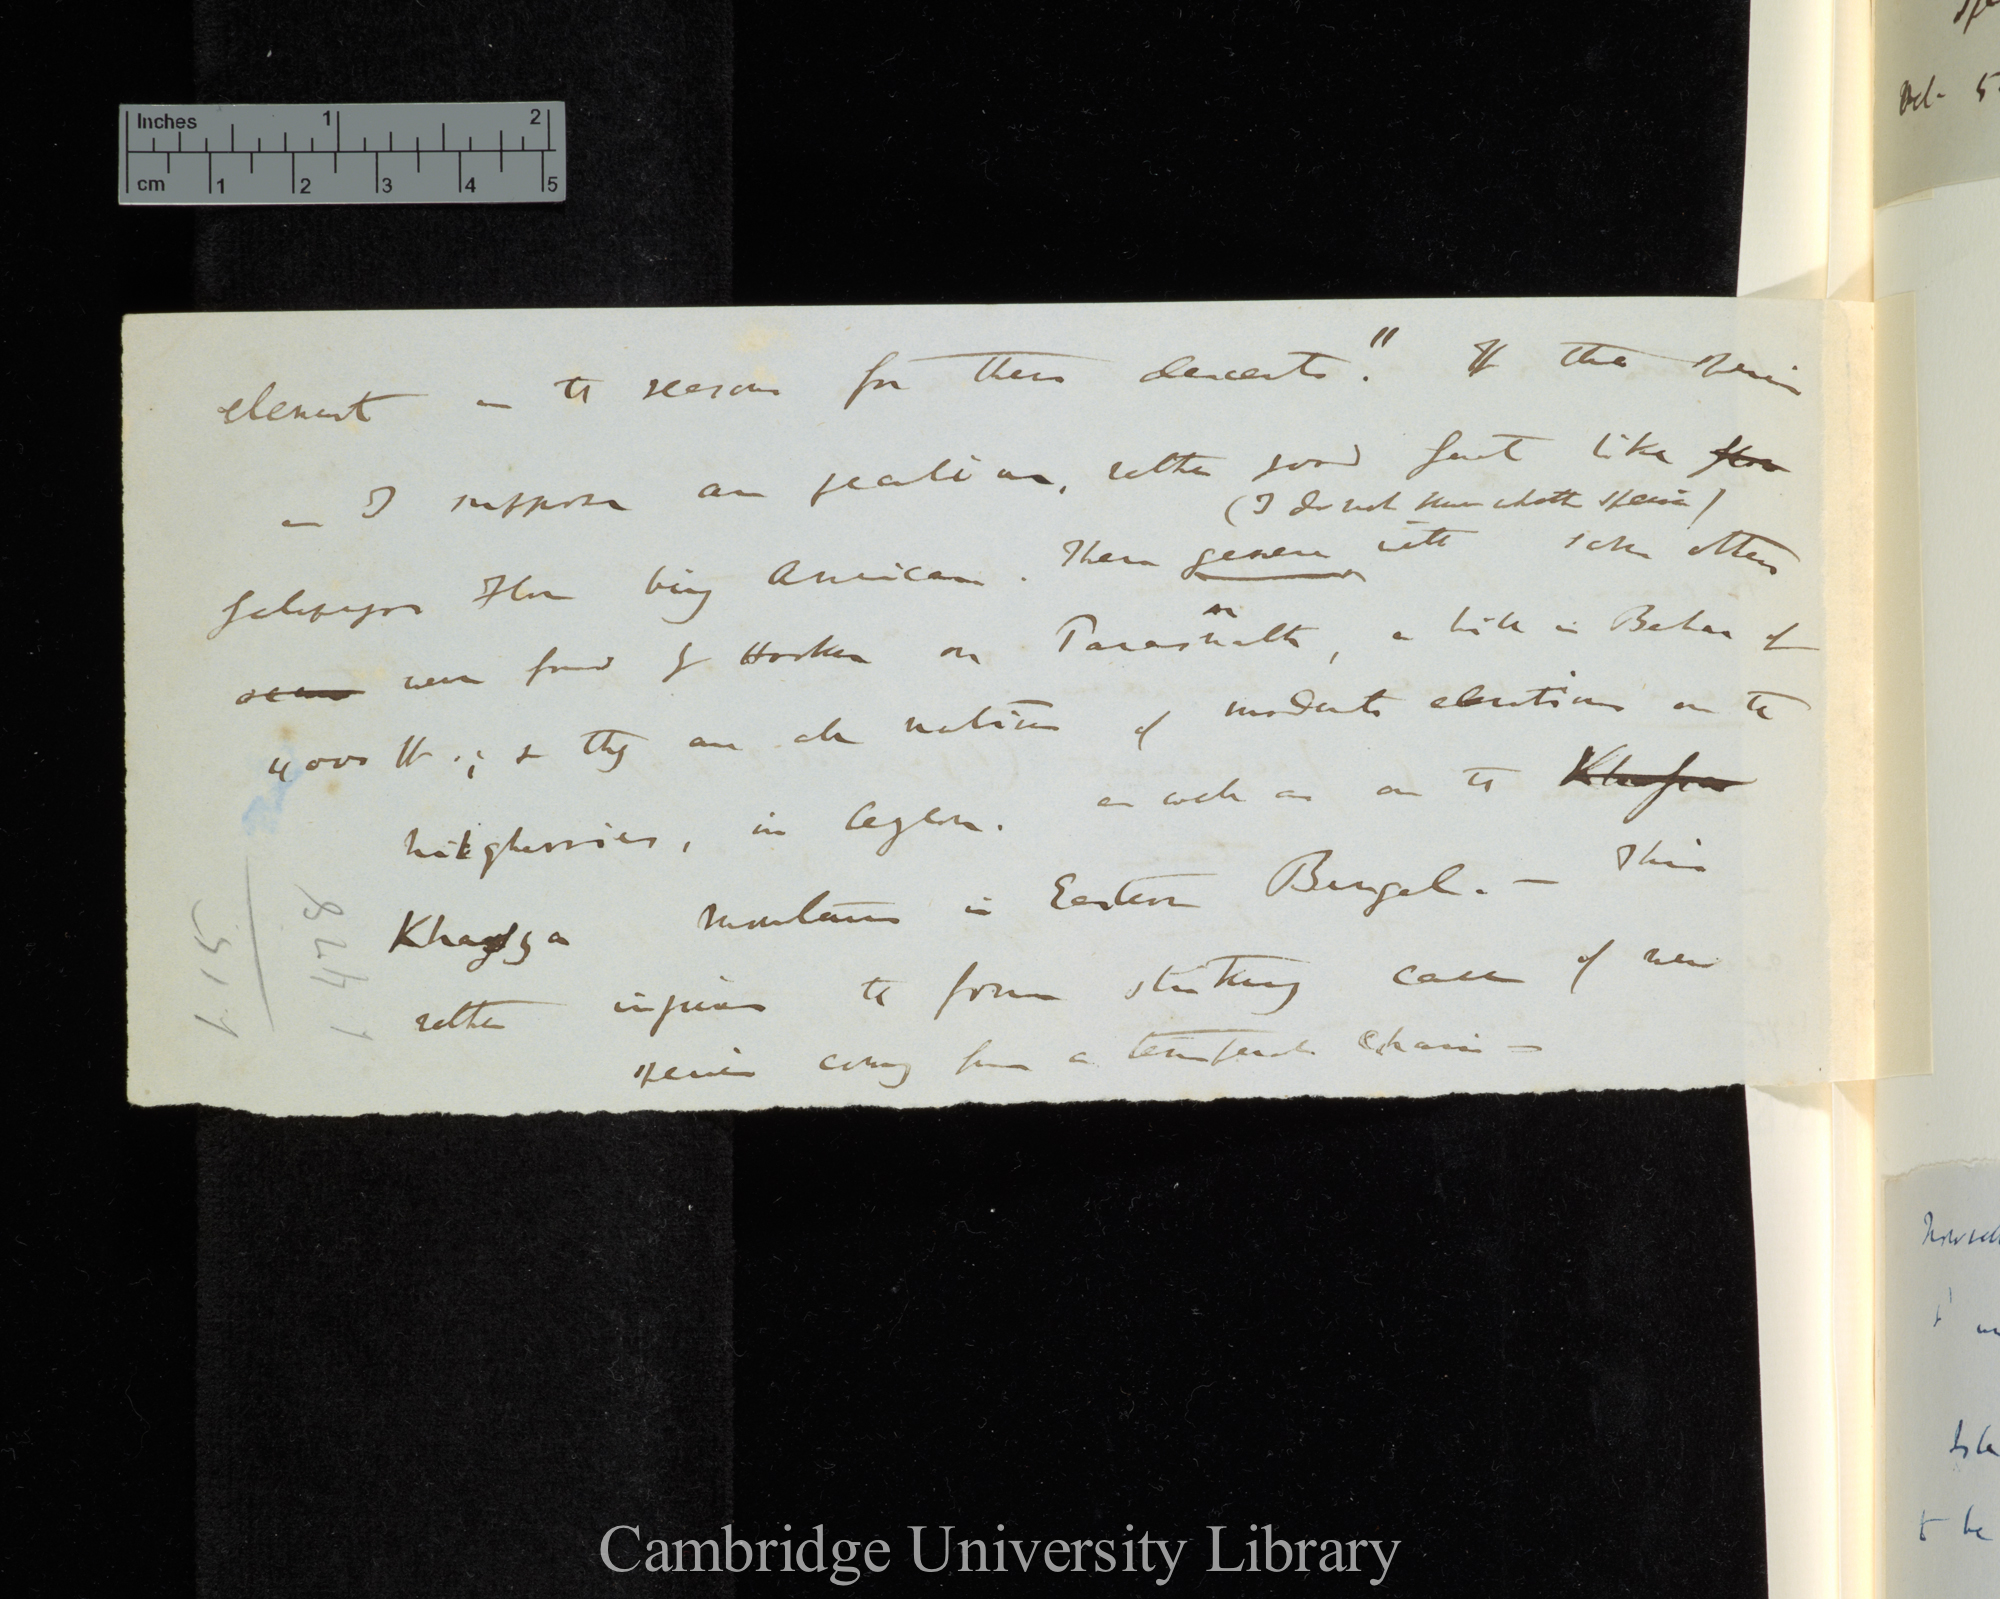 Inches 1 2
cm 1 2 3 4 5
element in the reasons for these descents." If the species
as I suppose are peculiar, rather good fact like
(I do not know whether species)
Galapagos Flora being American. These genera with some others
were found by Hooker on Parasnath, a hill in Behar of
4000 ft.; & they are also natives of moderate elevations on the
Nilgherries, in Ceylon. as well as on the Khasia
Khasya mountains in Eastern Bengal. — This
rather injures the former striking case of new
species coming from a temperate chain —
1478
519
Cambridge University Library
to be